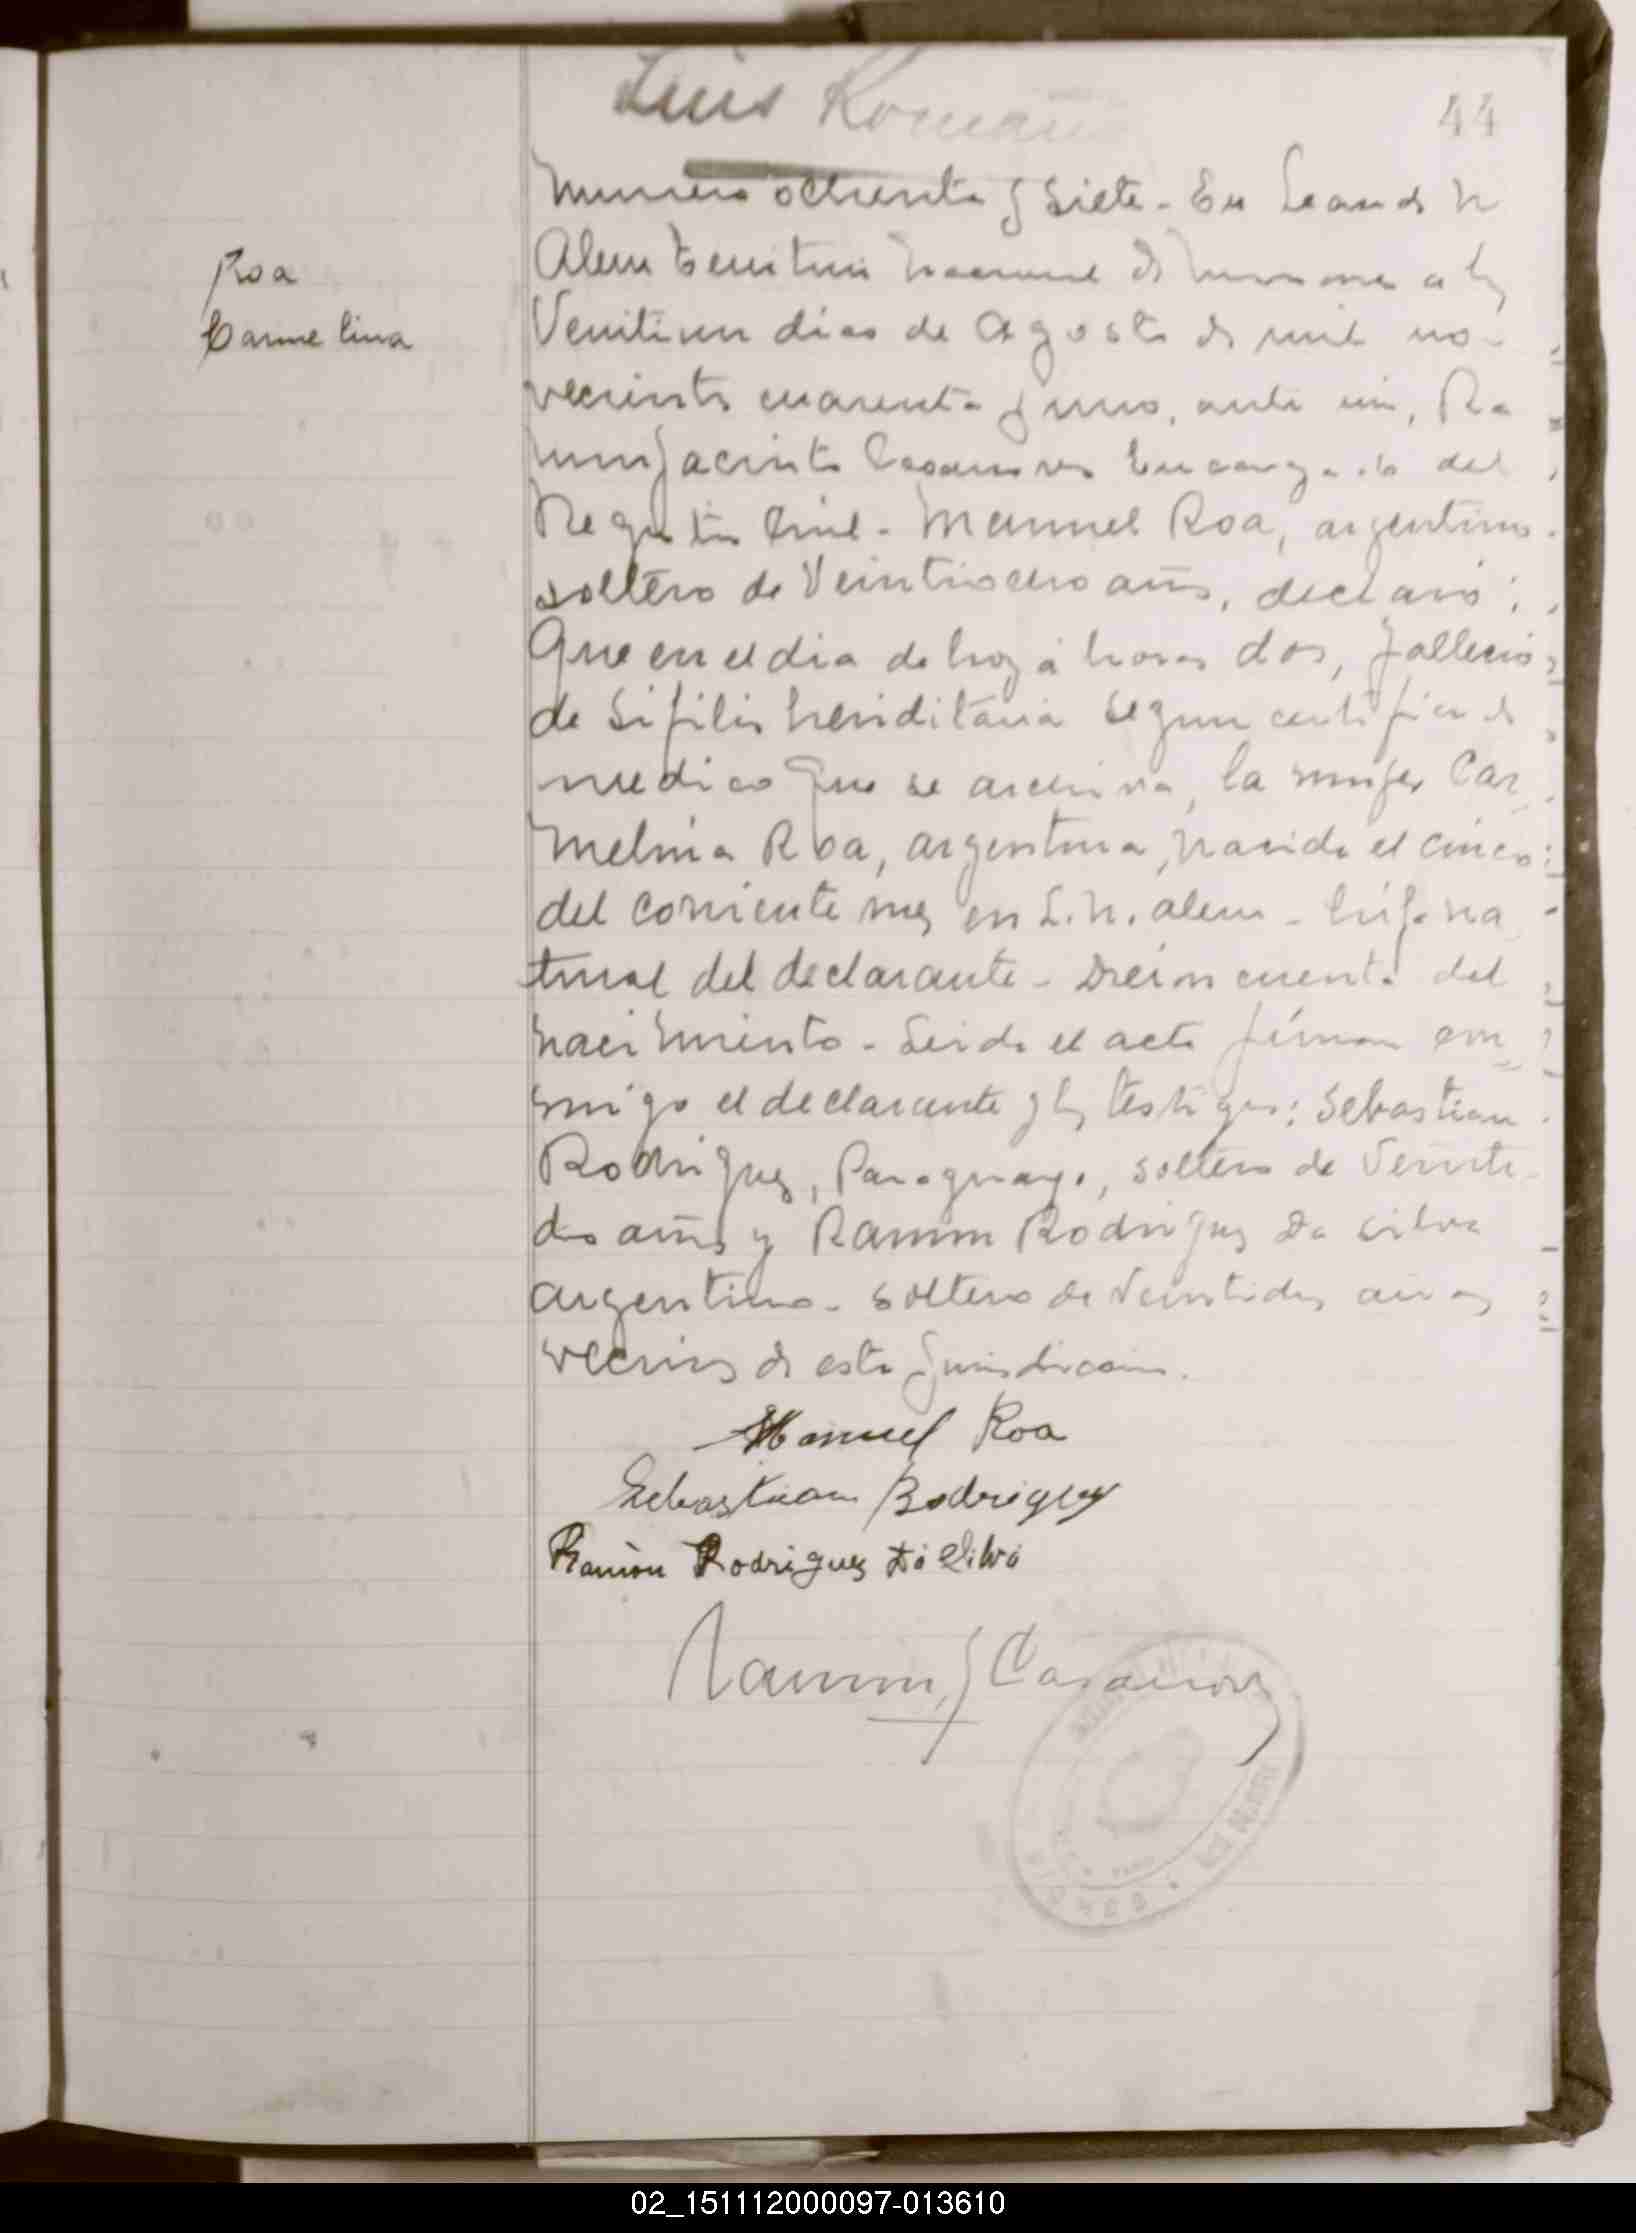 Luis Roman
44
Roa
Carmelina
Numero ochenta y siete - En Leand N
Alem Territorio Nacional de Misiones a los
Veintiun dias de Agosto de mil no-
vecientos cuarenta y uno, ante mi, Ra
mon Jacinto Casanova Encargado del
Registro Civil - Manuel Roa, argentino
soltero de Veintiocho años, declaró:
Que en el dia de hoy á horas dos, fallecio
de Sifilis heriditaria segun certificado
medico que se archiva, la mujer Car
melina Roa, argentina, nacida el cinco
del corriente mes en L. N. Alem - hija na
tural del declarante -            cuenta del
nacimiento - Leida el acta firman con
migo el declarante y los testigos: Sebastian
Rodriguez, Paraguayo, soltero de Veinti-
dos años y Ramon Rodriguez Da Silva
argentino - soltero de Veintidos años
vecinos de esta jurisdiccion.
Manuel Roa
Sebastian Rodriguez
Ramón Rodriguez Da Silva
Ramon J Casanova
02_151112000097-013610